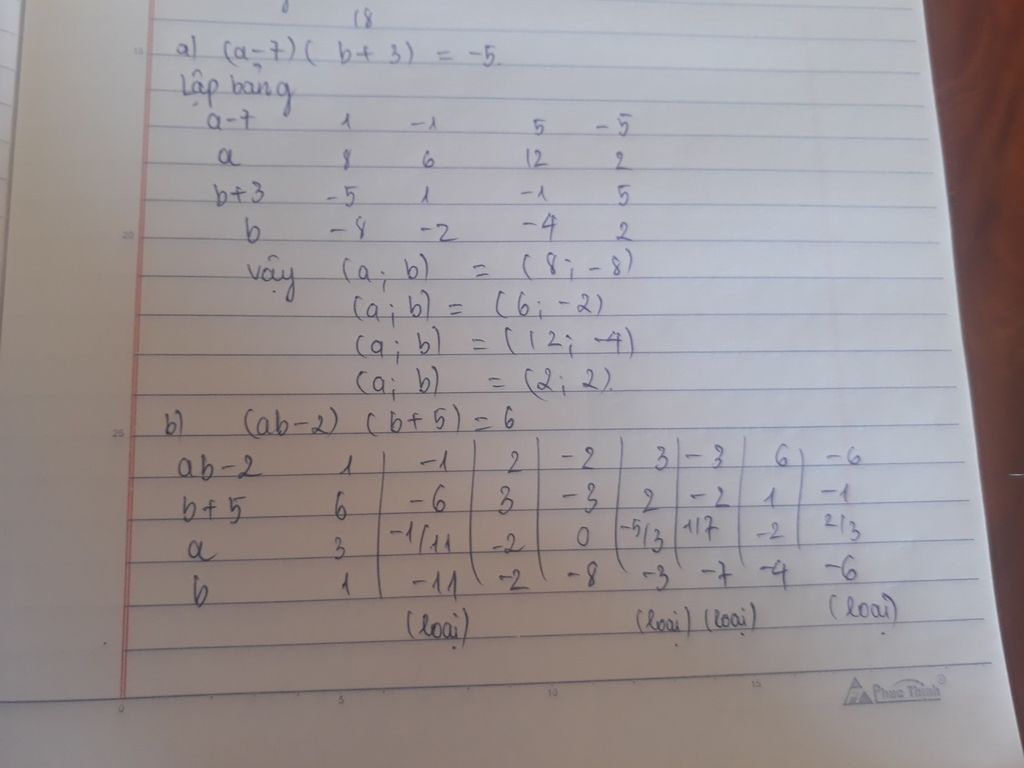 18
a) (a-7)( b+3) = -5.
Lập bảng
a-7 1 -1 5 -5
a 8 6 12 2
b+3 -5 1 -1 5
20 b -8 -2 -4 2
vậy (a; b) = (8; -8)
(a; b) = (6; -2)
(a; b) = (12; -4)
(a; b) = (2; 2).
25 b) (ab-2) (b+5) = 6
ab-2 1 -1 2 -2 3 -3 6 -6
b+5 6 -6 3 -3 2 -2 1 -1
a 3 -1/11 -2 0 -5/3 1/7 -2 2/3
b 1 -11 -2 -8 -3 -7 -4 -6
(loại) (loại) (loại) (loại)
0 5 10 15 Phúc Thịnh